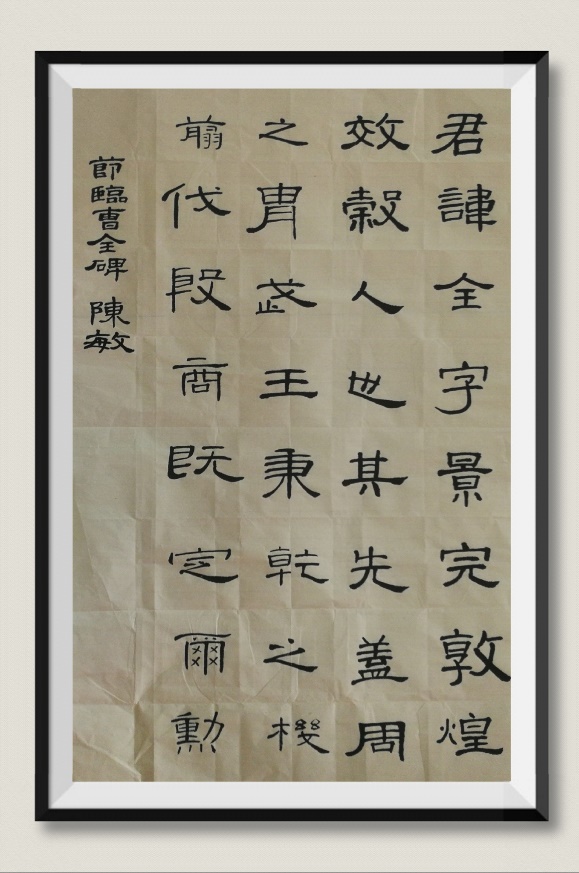 君諱全字景完敦煌
效穀人也其先蓋周
之胄武王秉乾之機
翦伐殷商既定爾勳
節臨曹全碑 陳敏